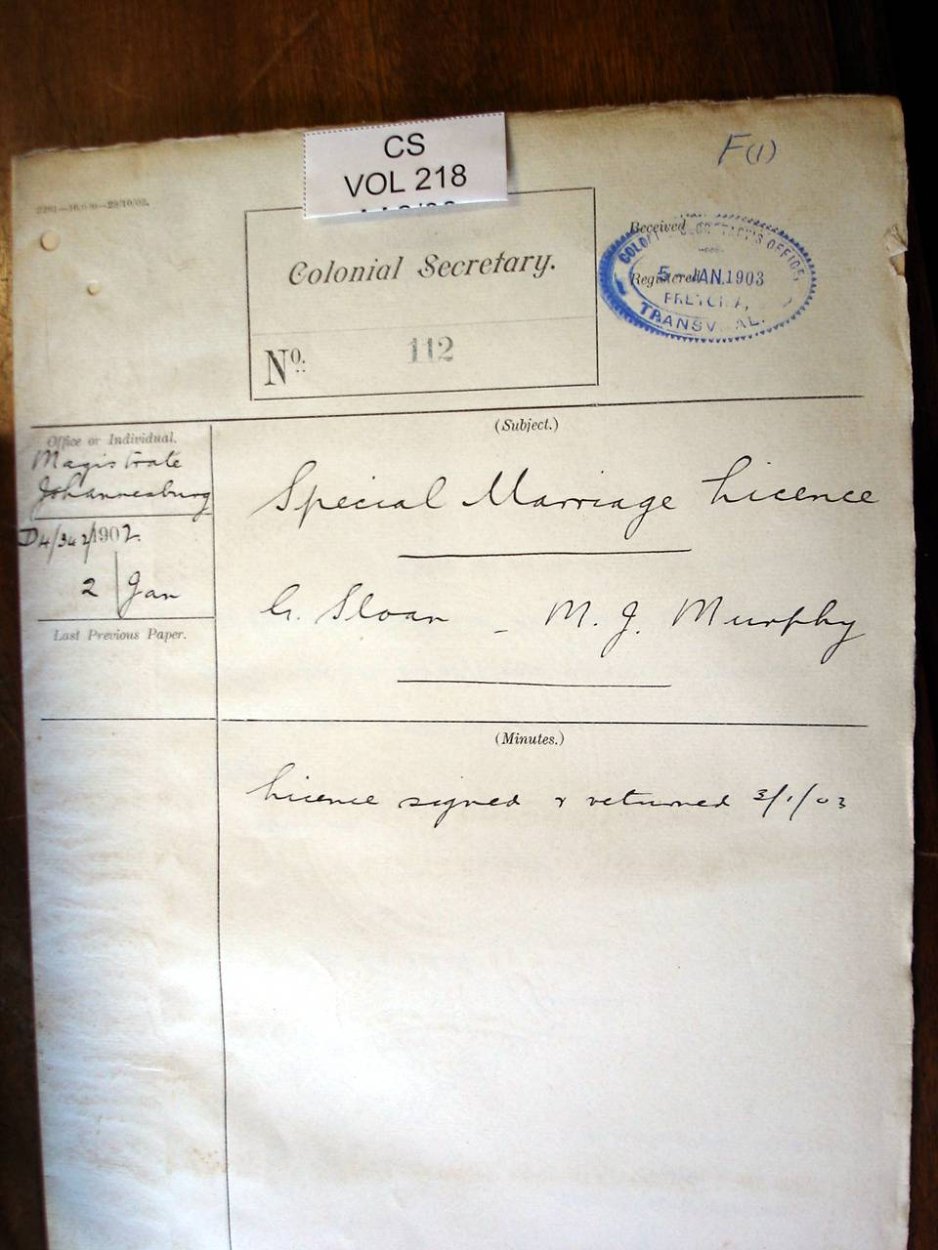 CS
VOL 218
F(1)
Colonial Secretary.
No. 112
Received
Registered
COLONIAL SECRETARY'S OFFICE
5-JAN.1903
PRETORIA,
TRANSVAAL.
Office or Individual.
Magistrate
Johannesburg
D4/342/1902.
2 Jan
Last Previous Paper.
(Subject.)
Special Marriage Licence
G. Sloan - M. J. Murphy
(Minutes.)
Licence signed & returned 3/1/03